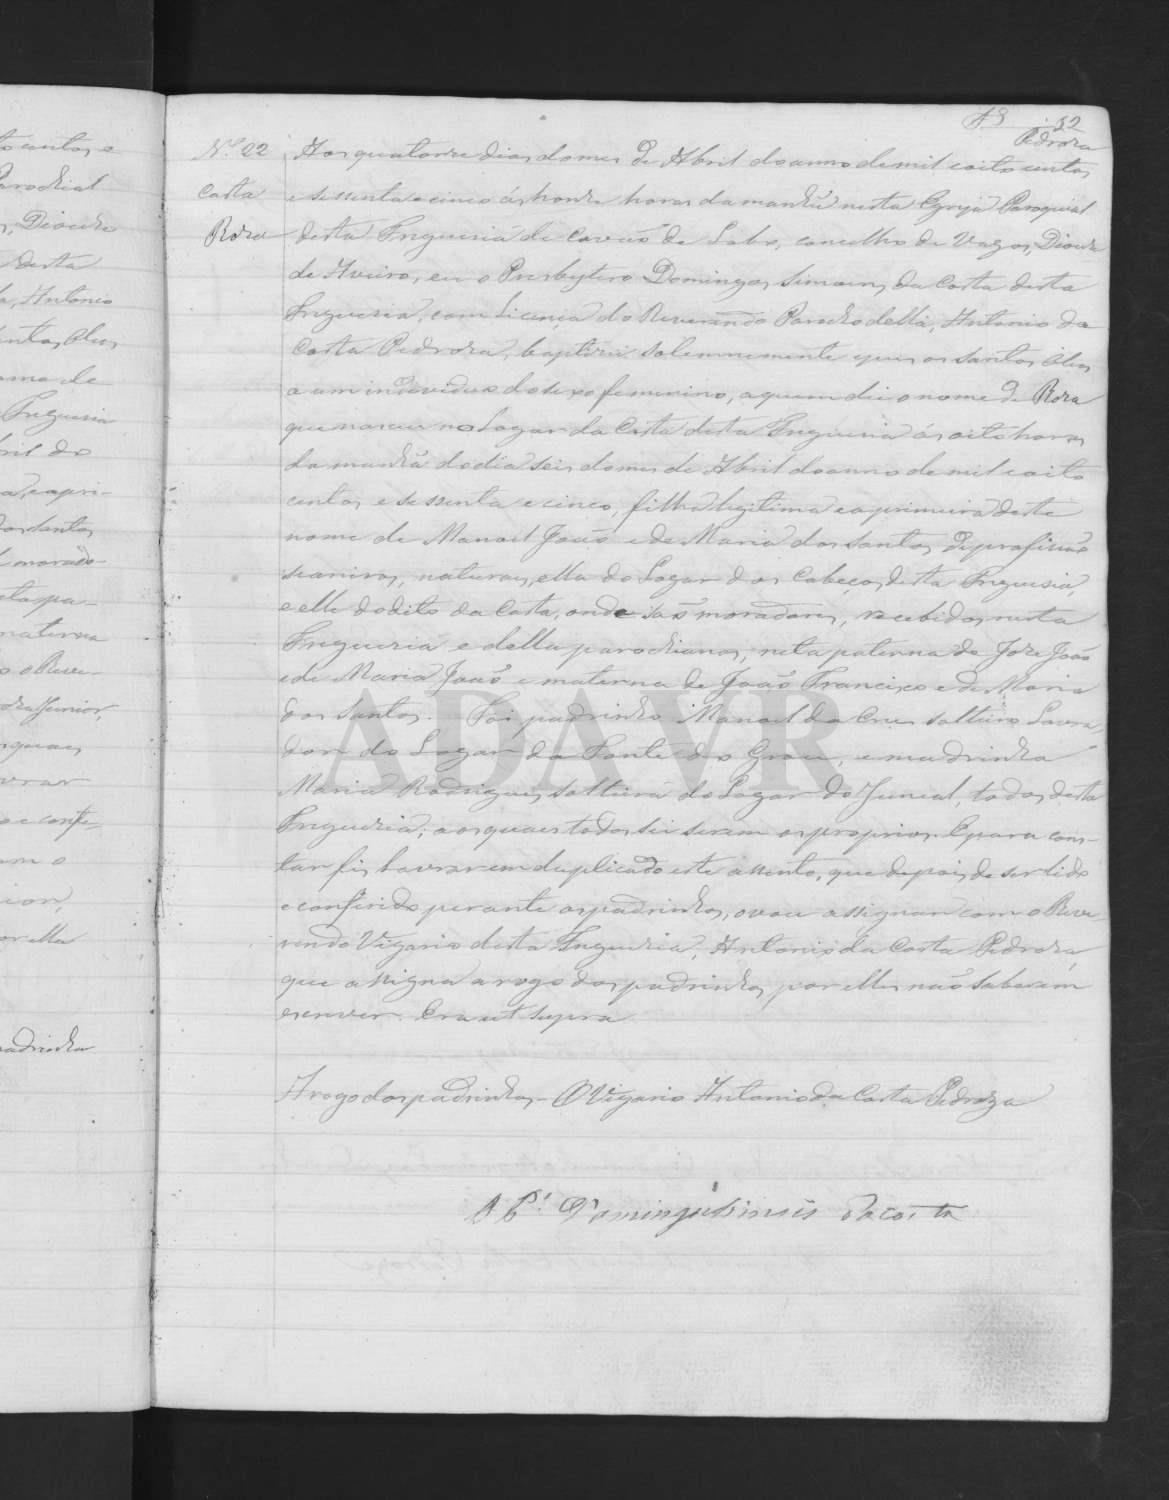 52
Pedroza
N.º 22
Costa
Roza
Aos quatorze dias do mes de Abril do anno de mil e oito centos
e sessenta e cinco ás honze horas da manhã nesta Egreja Paroquial
desta Freguezia de Covão do Lobo, concelho de Vagos, Diocese
de Aveiro, eu o Presbytero Domingos Simoens da Costa desta
Freguezia, com licença do Reverendo Parocho della, Antonio da
Costa Pedroza, baptizei solemnemente e puz os santos oleos
a um individuo do sexo femenino, a quem dei o nome de Roza
que nasceu no Logar da Costa desta Freguezia ás oito horas
da manhã do dia seis do mes de Abril do anno de mil e oito
centos e sessenta e cinco, filha legitima e a primeira deste
nome de Manoel João e de Maria dos Santos de profissão
seareiros, naturaes, ella do Logar dos Cabeços desta Freguesia,
e elle do dito da Costa, onde são moradores, recebidos nesta
Freguezia e della parochianos, neta paterna de Joze João
e de Maria João e materna de João Francisco e de Maria
dos Santos. Foi padrinho Manoel da Cruz solteiro Lavra
dor do Logar da Fonte do Grou, e madrinha
Maria Rodrigues solteira do Logar do Juncal, todos desta
Freguezia; aos quaes todos sei serem os proprios. E para cons-
tar fiz lavrar em duplicado este assento, que depois de ser lido
e conferido perante os padrinhos, o vou assignar com o Reve
rendo Vigario desta Freguezia, Antonio da Costa Pedroza,
que assigna a rogo dos padrinhos por elles não saberem
escrever. Era ut supra
A rogo dos padrinhos - O Vigario Antonio da Costa Pedroza
O P.e Domingos Simões da Costa
ADAVR